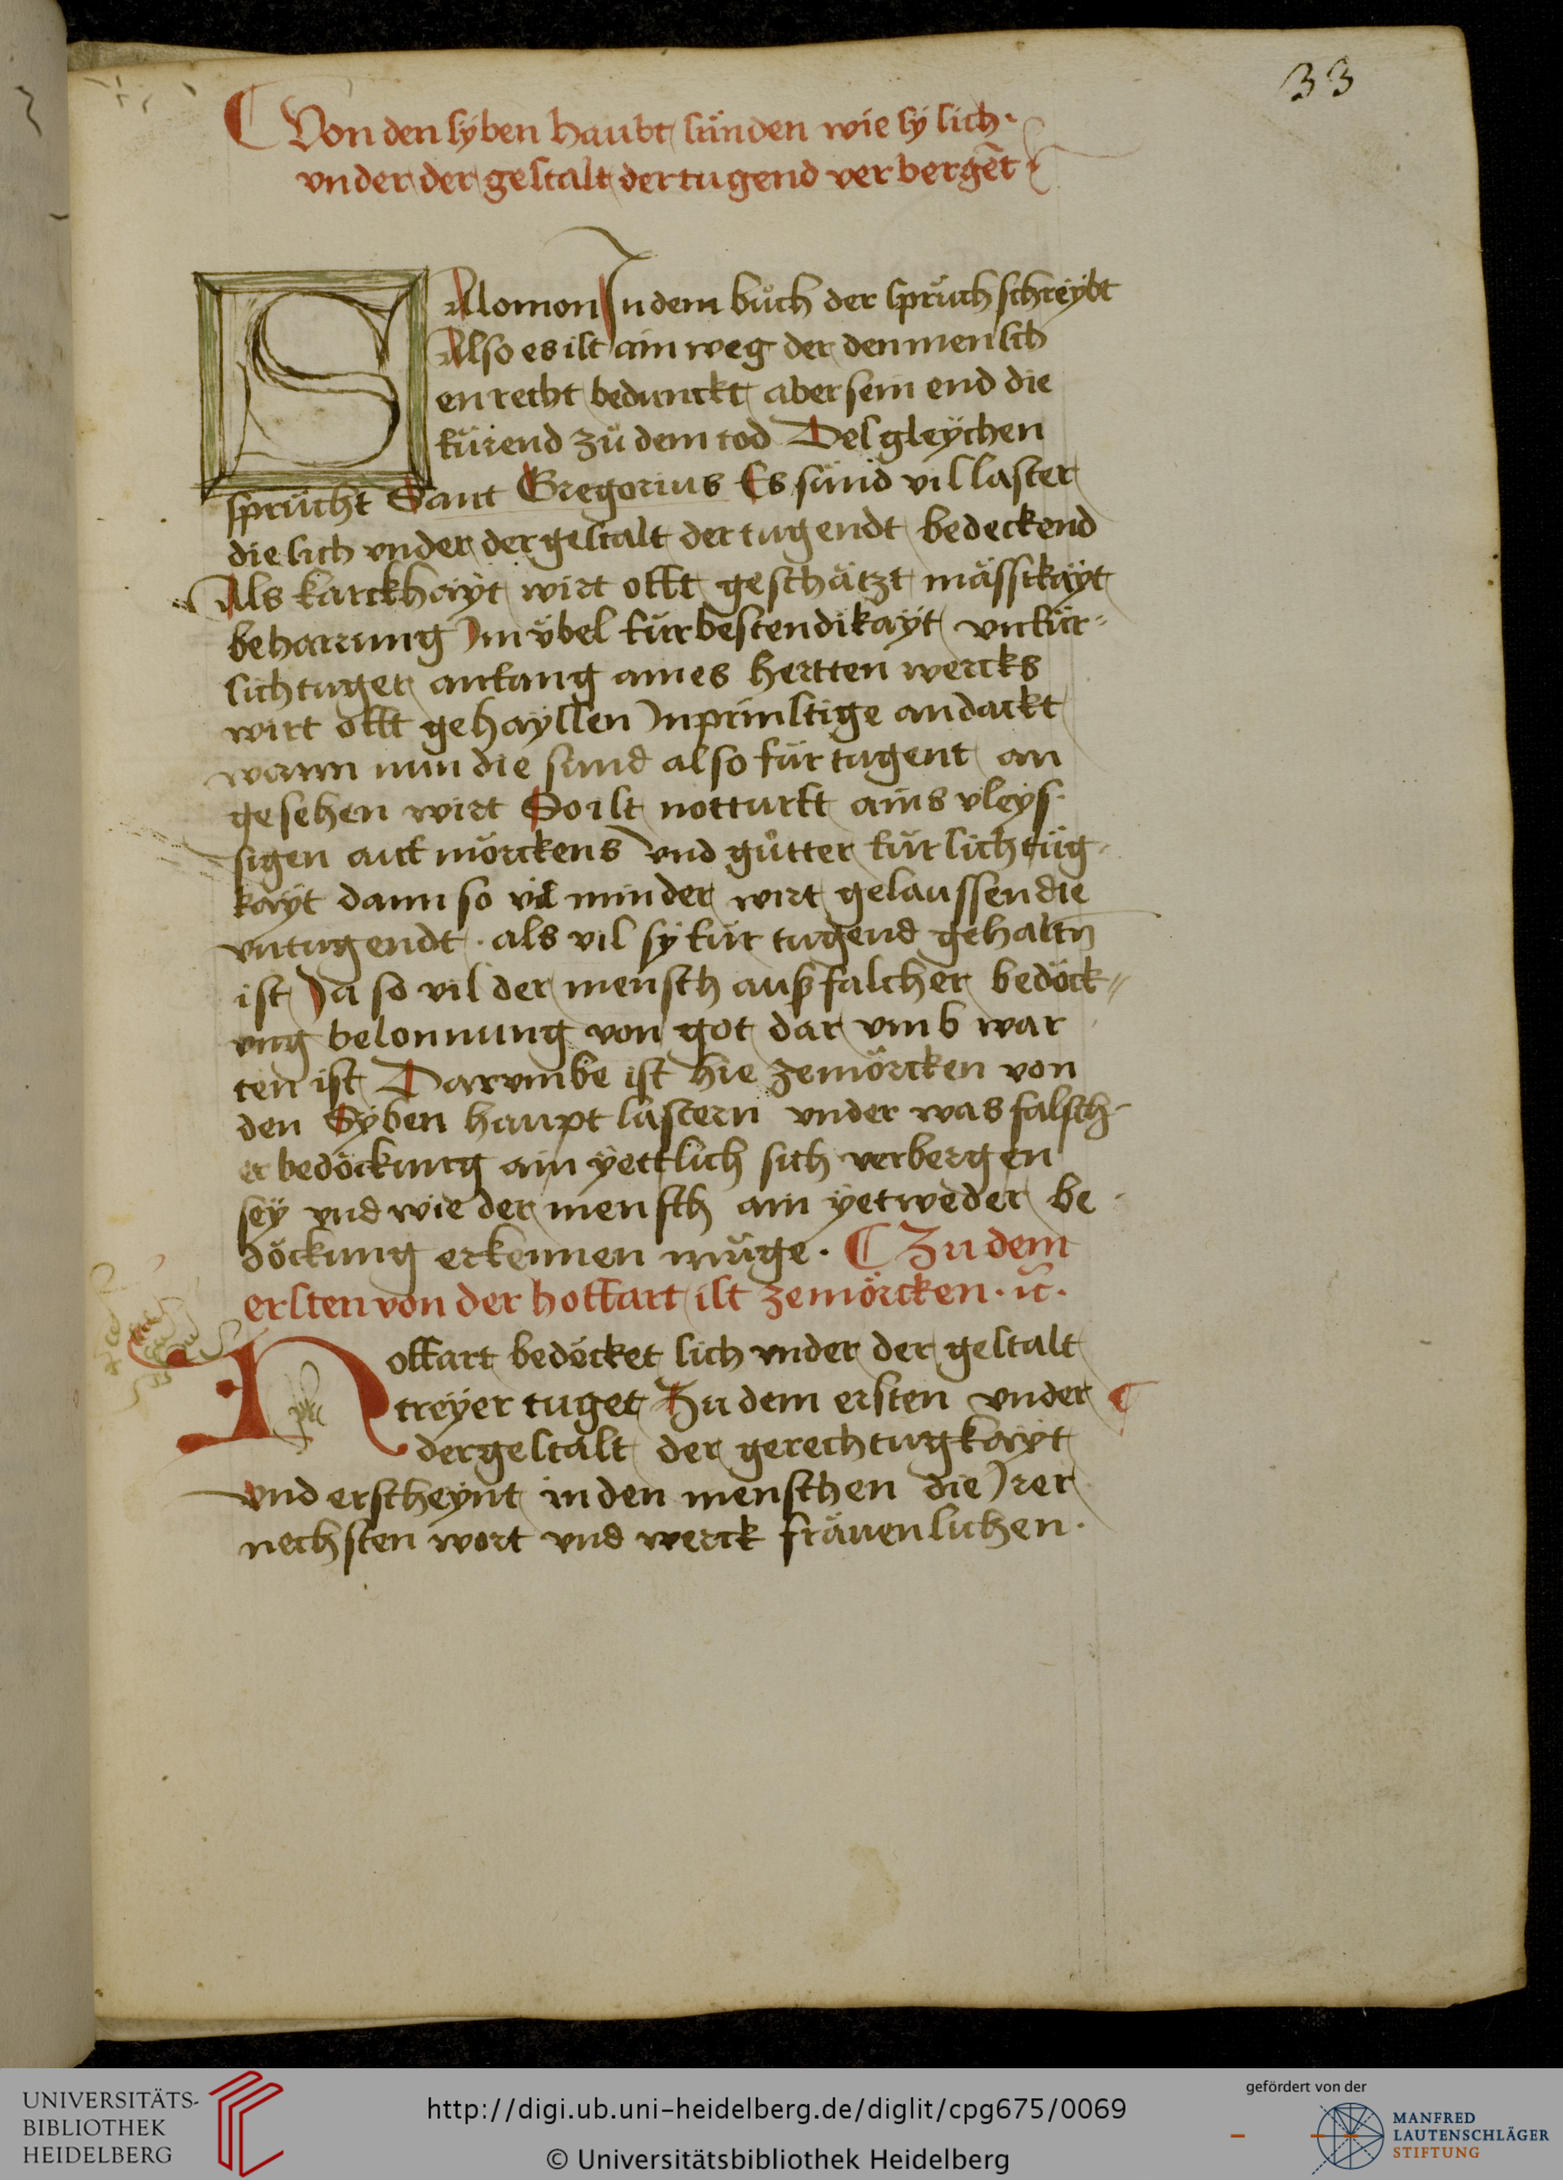 33
Von den syben haubt sünden wie sy sich·
vnder der gestalt der tugend verbergēt
SAlomon In dem bůch der sprüch schreybt
Also es ist ain weg der den mensch
en recht bedunckt aber sein end die
fürend zů dem tod Desgleychen
sprücht Sant Gregorius Es sünd vil laster
die sich vnder der gestalt der tugendt bedeckend
Als karckhayt wirt offt geschätzt mässikayt
beharrung Im übel für bestendikayt vnfür-
sichtuger anfang aines hertten wercks
wirt offt gehayssen Inprinstige andackt
wann nun die sünd also für tugent an
gesehen wirt So ist notturft ains vleys
sigen auf mörckens vnd gůtter fürsichtüg-
kayt dann so vil minder wirt gelaussen die
vntugendt · als vil sy für tugend gehaltn̄
ist Ja so vil der mensch auß falcher bedöck-
ung belonnung von got dar vmb war
ten ist Darvmbe ist hie zemörcken von
den Syben haupt lastern vnder was falsch-
er bedöckung ain yettlich sich verbergen
sey vnd wie der mensch ain yetweder be-
döckung erkennen müge · Zu dem
ersten von der hoffart ist zemörcken · ꝛc̄ ·
Hoffart bedöcket sich vnder der gestalt
treyer tuget Zu dem ersten vnder
der gestalt der gerechtugkayt
vnd erscheynt in den menschen die Irer
nechsten wort vnd werck fräuenlichen ·
UNIVERSITÄTS-
BIBLIOTHEK
HEIDELBERG
http://digi.ub.uni-heidelberg.de/diglit/cpg675/0069
© Universitätsbibliothek Heidelberg
gefördert von der
MANFRED
LAUTENSCHLÄGER
STIFTUNG